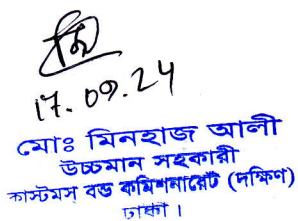 17.09.24
মোঃ মিনহাজ আলী
উচ্চমান সহকারী
কাস্টমস বন্ড কমিশনারেট (দক্ষিণ)
ঢাকা।